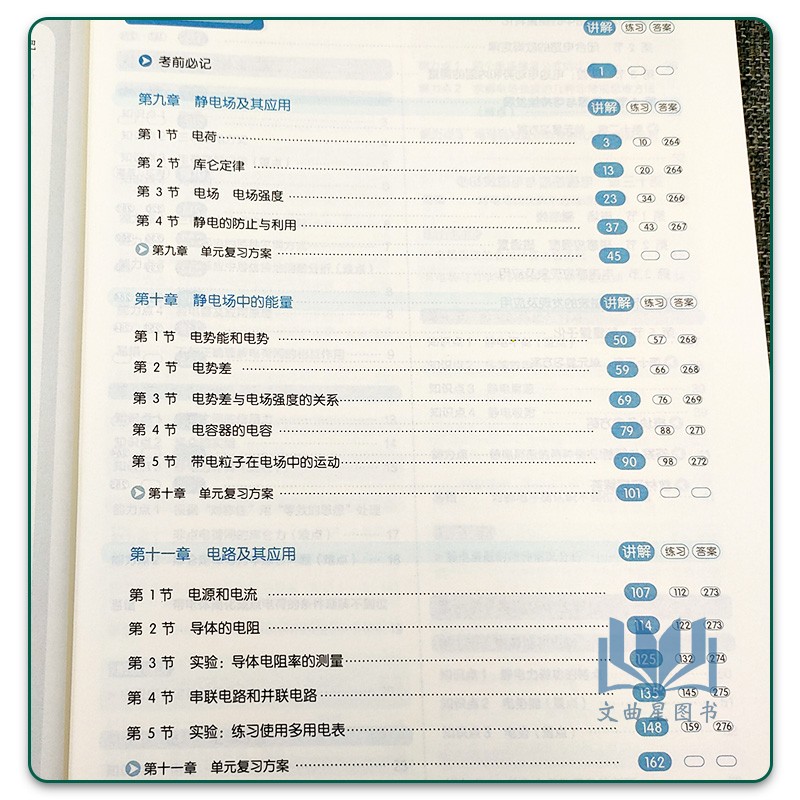 讲解 练习 答案
考前必记 1
第九章 静电场及其应用 讲解 练习 答案
第1节 电荷 3 10 264
第2节 库仑定律 13 20 264
第3节 电场 电场强度 23 34 266
第4节 静电的防止与利用 37 43 267
第九章 单元复习方案 45
第十章 静电场中的能量 讲解 练习 答案
第1节 电势能和电势 50 57 268
第2节 电势差 59 66 268
第3节 电势差与电场强度的关系 69 76 269
第4节 电容器的电容 79 88 271
第5节 带电粒子在电场中的运动 90 98 272
第十章 单元复习方案 101
第十一章 电路及其应用 讲解 练习 答案
第1节 电源和电流 107 112 273
第2节 导体的电阻 114 122 273
第3节 实验：导体电阻率的测量 125 132 274
第4节 串联电路和并联电路 135 145 275
文曲星图书
第5节 实验：练习使用多用电表 148 159 276
第十一章 单元复习方案 162